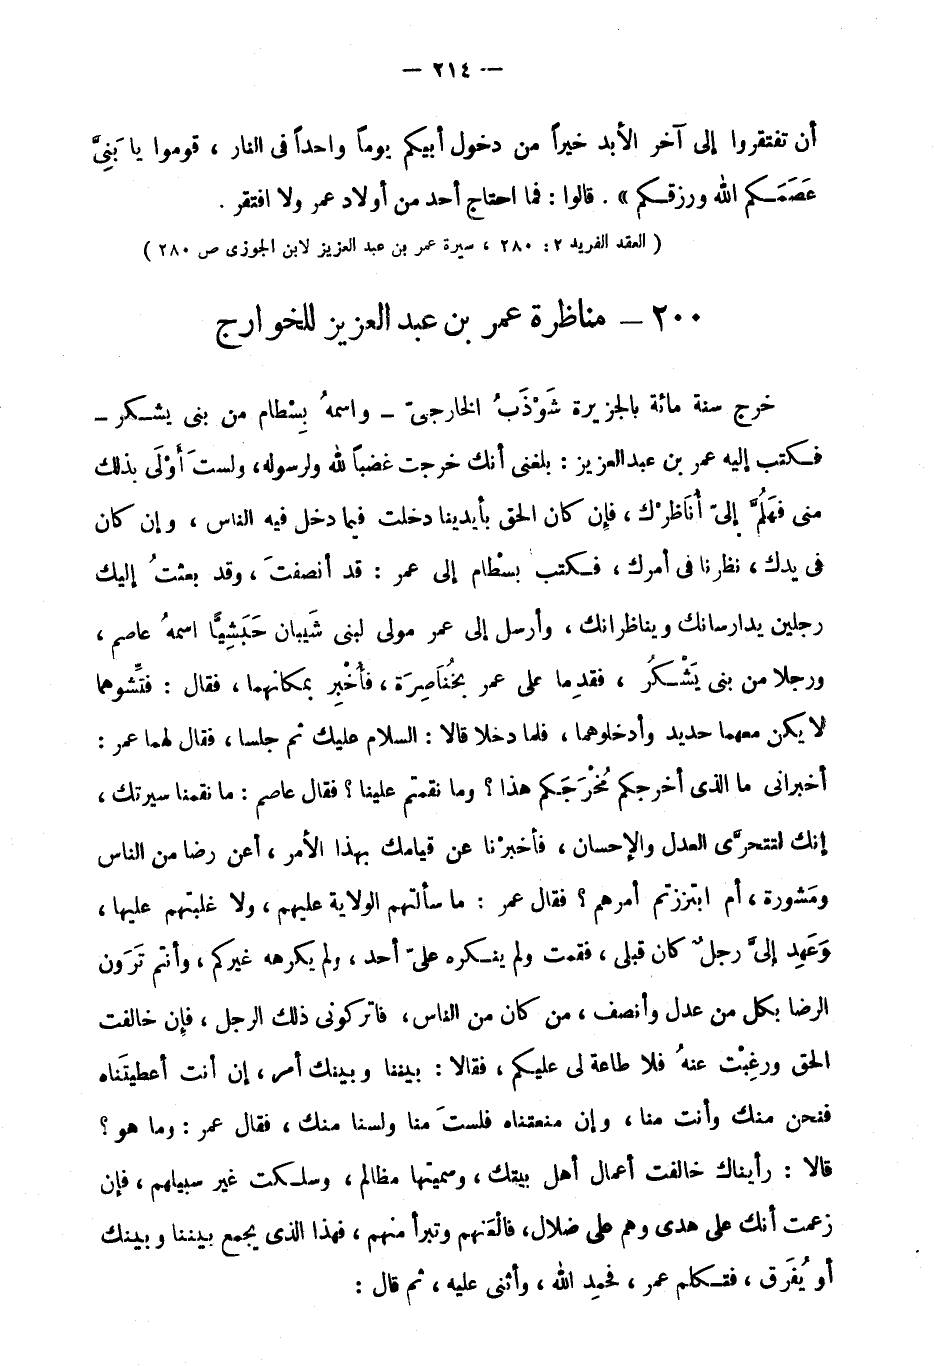 — ٢١٤ —
أن تفتقروا إلى آخر الأبد خيراً من دخول أبيكم يوماً واحداً فى النار ، قوموا يا بَنِىَّ
عَصَمَكم الله ورزقكم » . قالوا : فما احتاج أحد من أولاد عمر ولا افتقر .
( العقد الفريد ٢ : ٢٨٠ ، سيرة عمر بن عبد العزيز لابن الجوزى ص ٢٨٠ )
٢٠٠ — مناظرة عمر بن عبد العزيز للخوارج
خرج سنة مائة بالجزيرة شَوْذَبُ الخارجىّ – واسمهُ بِسْطام من بنى يشكر –
فكتب إليه عمر بن عبد العزيز : بلغنى أنك خرجت غضباً لله ولرسوله ، ولستَ أَوْلَى بذلك
منى فهَلُمَّ إلىّ أُنَاظرْك ، فإن كان الحق بأيدينا دخلت فيما دخل فيه الناس ، وإن كان
فى يدك ، نظرنا فى أمرك ، فكتب بسْطام إلى عمر : قد أنصفتَ ، وقد بعثتُ إليك
رجلين يدارسانك ويناظرانك ، وأرسل إلى عمر مولى لبنى شَيبان حَبَشِيًّا اسمهُ عاصم ،
ورجلا من بنى يَشْكُرُ ، فقدِما على عمر بخُنَاصِرَة ، فأُخْبِر بمكانهما ، فقال : فتِّشوهما
لا يكن معهما حديد وأدخلوهما ، فلما دخلا قالا : السلام عليك ثم جلسا ، فقال لهما عمر :
أخبرانى ما الذى أخرجكم مُخْرَجَكم هذا ؟ وما نقمتم علينا ؟ فقال عاصم : ما نقمنا سيرتك ،
إنك لتتحرَّى العدل والإحسان ، فأخبرْنا عن قيامك بهذا الأمر ، أعن رضا من الناس
ومَشورة ، أم ابتززتم أمرهم ؟ فقال عمر : ما سألتهم الولاية عليهم ، ولا غلبتهم عليها ،
وَعَهِد إلىَّ رجلٌ كان قبلى ، فقمت ولم ينكره علىّ أحد ، ولم يكرهه غيركم ، وأنتم تَرَون
الرضا بكل من عدل وأنصف ، من كان من الناس ، فاتركونى ذلك الرجل ، فإن خالفت
الحق ورغِبْت عنهُ فلا طاعة لى عليكم ، فقالا : بيننا وبينك أمر ، إن أنت أعطيتَناه
فنحن منك وأنت منا ، وإن منعتناه فلستَ منا ولسنا منك ، فقال عمر : وما هو ؟
قالا : رأيناك خالفت أعمال أهل بيتك ، وسميتها مظالم ، وسلكت غير سبيلهم ، فإن
زعمت أنك على هدى وهم على ضلال ، فالْعَنهم وتبرأ منهم ، فهذا الذى يجمع بيننا وبينك
أو يُفَرق ، فتكلم عمر ، فحمِد الله ، وأثنى عليه ، ثم قال :